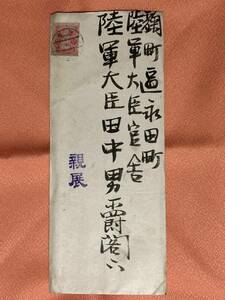 麹町區永田町
陸軍大臣官舎
陸軍大臣田中男爵閣下
親展